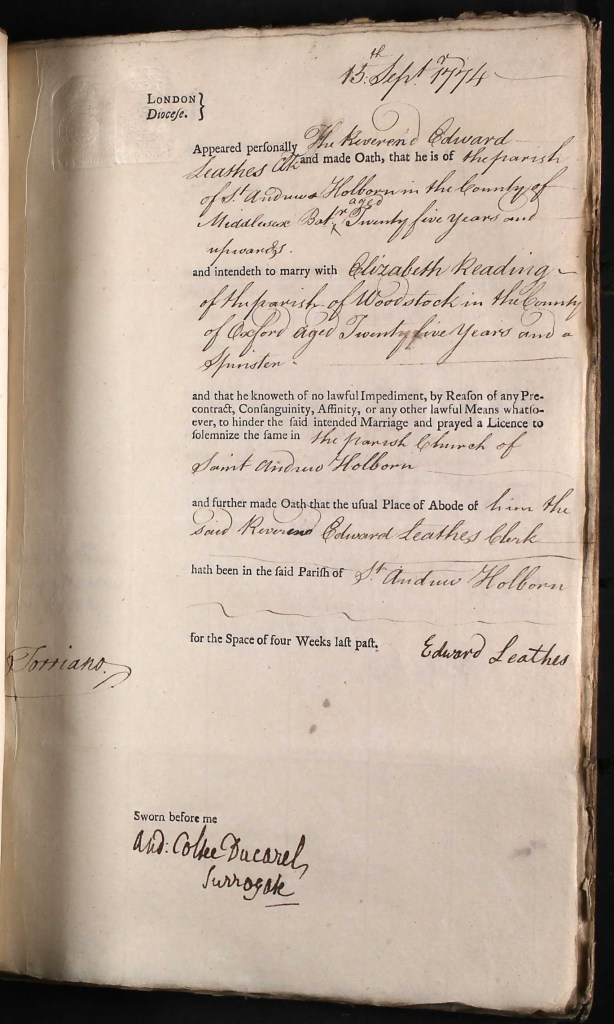 15th. Septr. 1774
LONDON }
Diocese. }
Appeared personally The Reverend Edward
Leathes Clk and made Oath, that he is of the parish
of St. Andrews Holborn in the County of
aged
Middlesex Batr. Twenty five Years and
upwards.
and intendeth to marry with Elizabeth Reading
of the parish of Woodstock in the County
of Oxford aged Twenty five Years and a
Spinster
and that he knoweth of no lawful Impediment, by Reason of any Pre-
contract, Consanguinity, Affinity, or any other lawful Means whatso-
ever, to hinder the said intended Marriage and prayed a Licence to
solemnize the same in the parish Church of
Saint Andrew Holborn
and further made Oath that the usual Place of Abode of him the
said Reverend Edward Leathes Clerk
hath been in the said Parish of St. Andrew Holborn
for the Space of four Weeks last past.
Edward Leathes
Torriano.
Sworn before me
And: Coltee Ducarel,
Surrogate